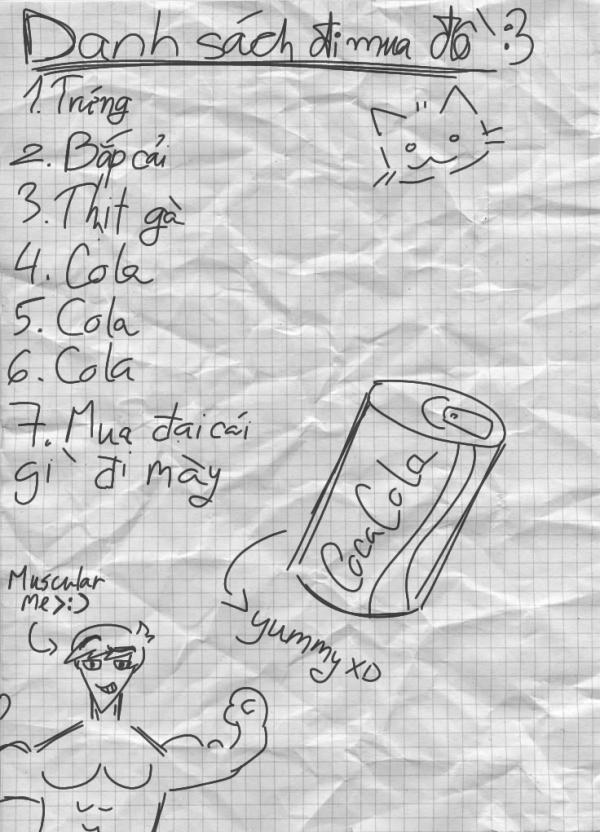 Danh sách đi mua đồ :3
1. Trứng
2. Bắp cải
3. Thịt gà
4. Cola
5. Cola
6. Cola
7. Mua đại cái
gì đi mày
CocaCola
yummy XD
Muscular
me >:)